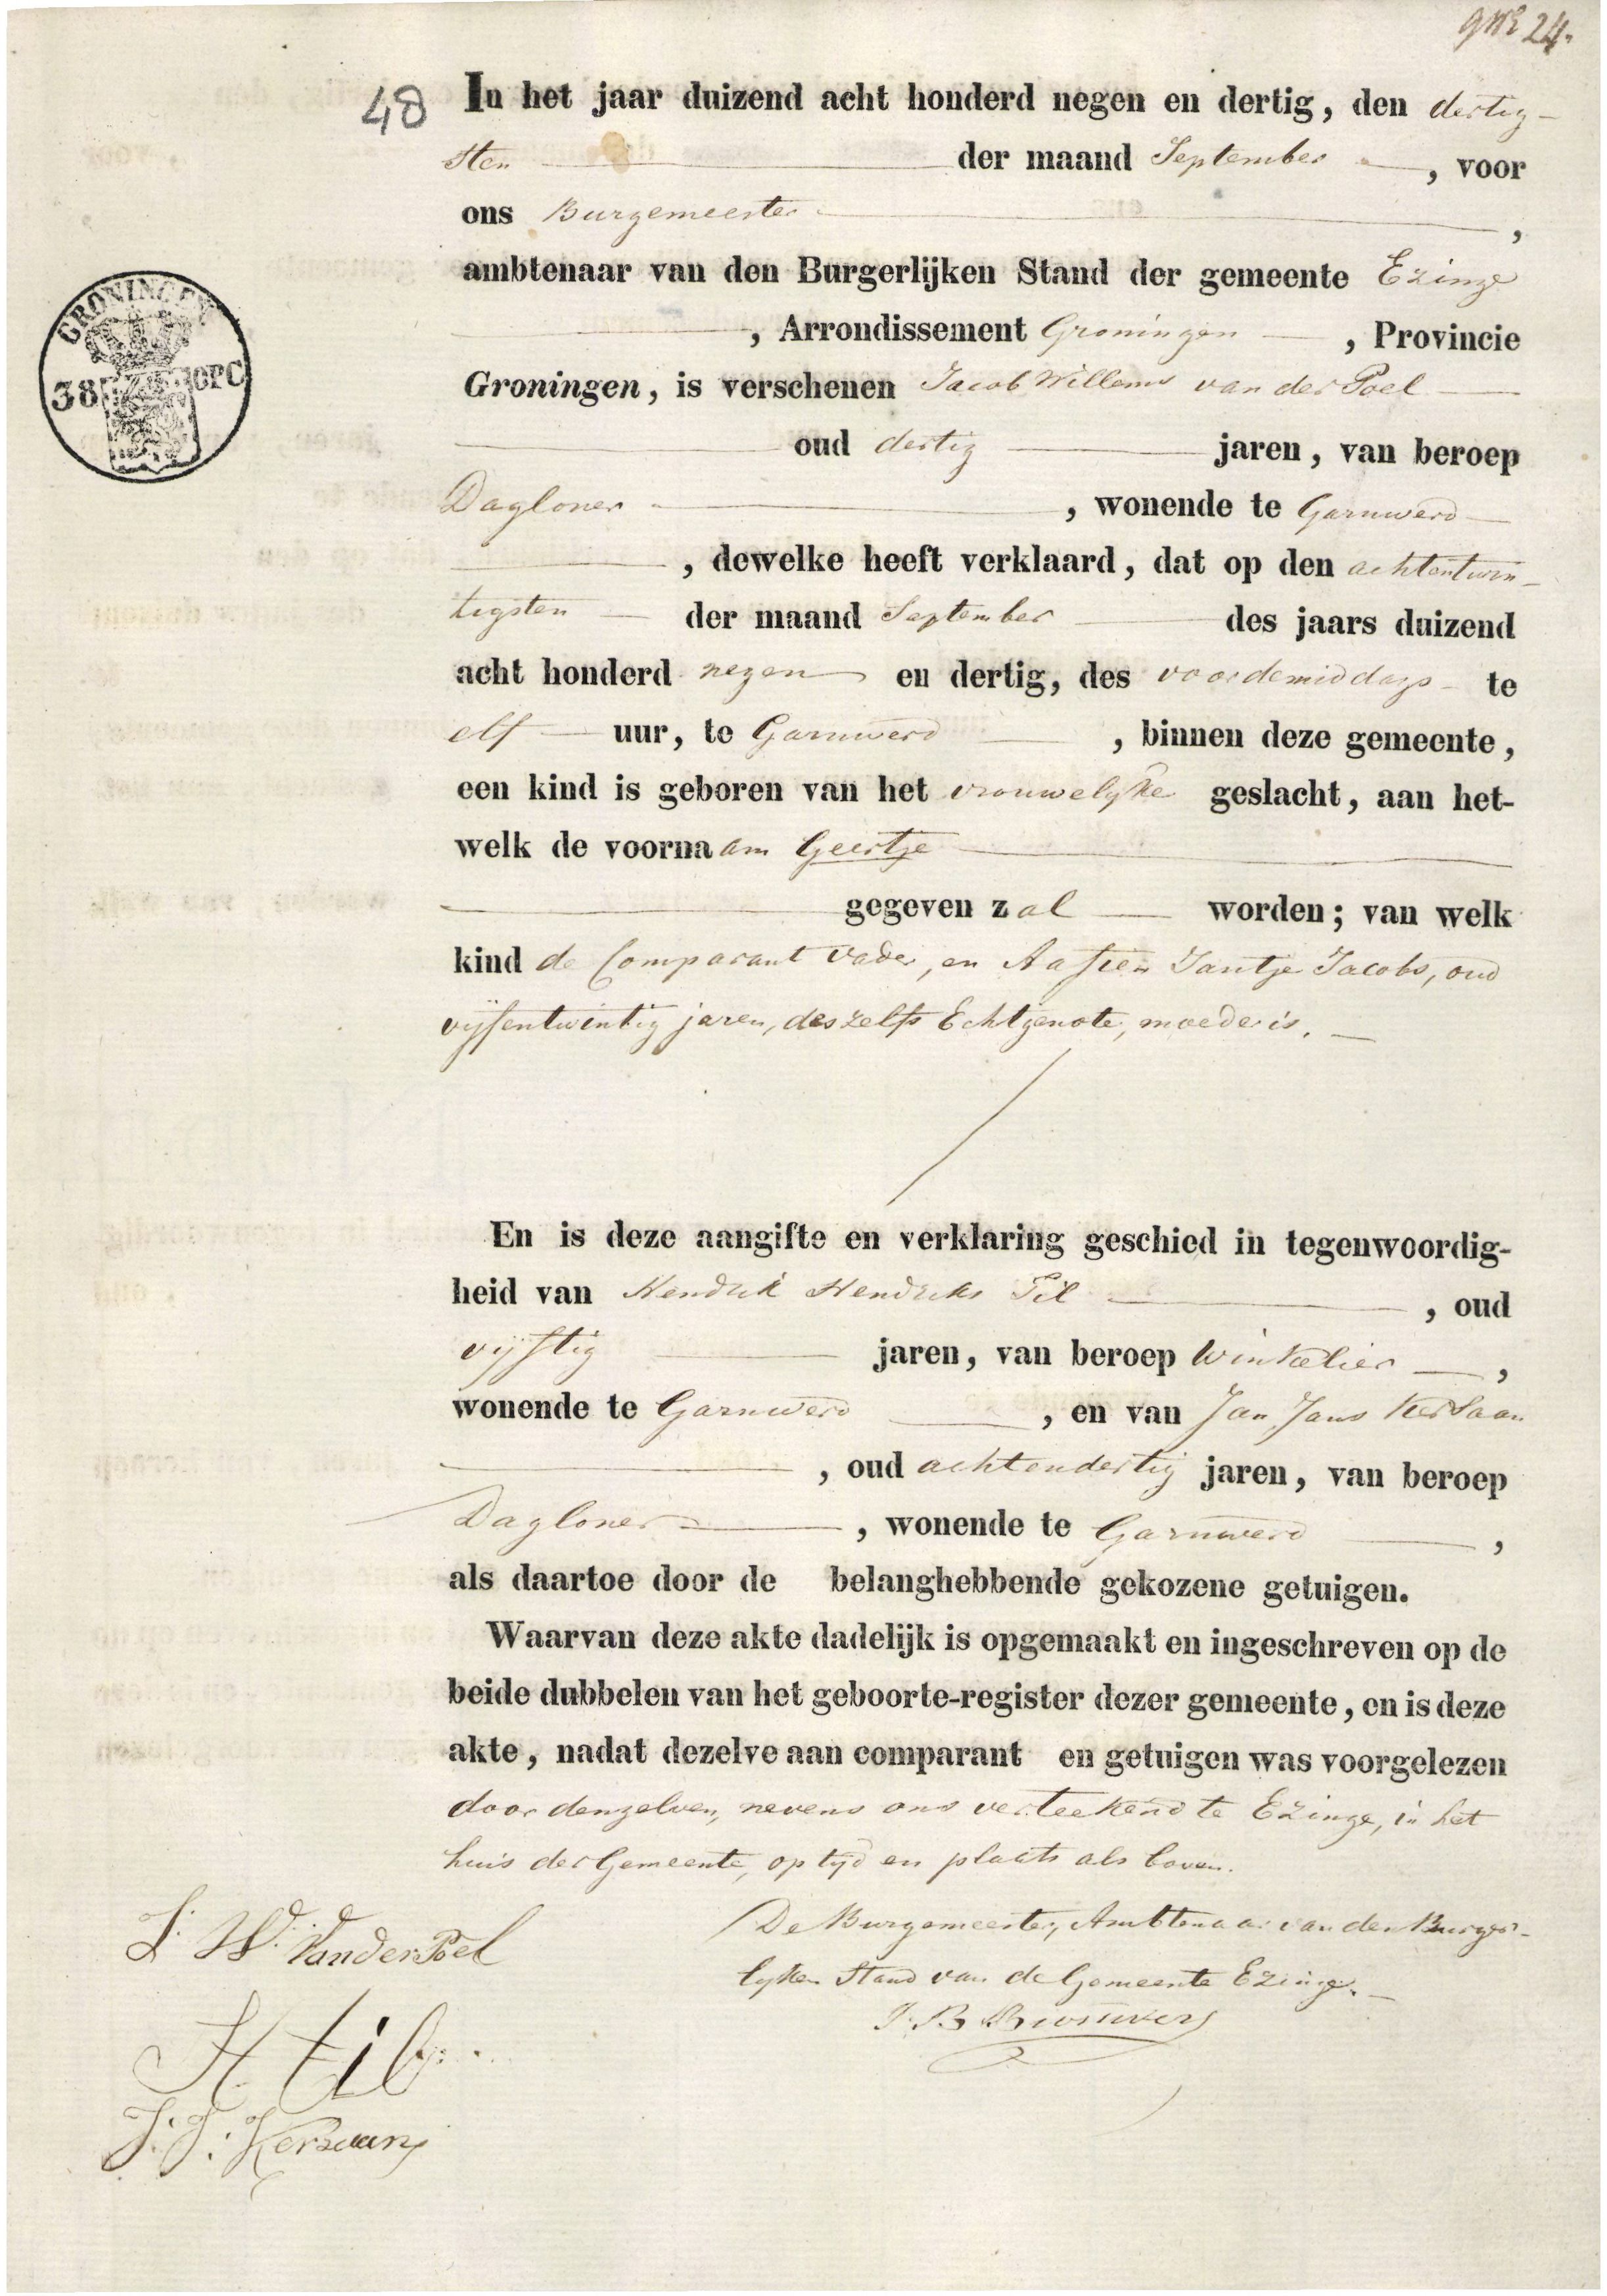 No 24.
48
In het jaar duizend acht honderd negen en dertig, den dertig-
sten der maand September, voor
ons Burgemeester,
ambtenaar van den Burgerlijken Stand der gemeente Ezinge
, Arrondissement Groningen, Provincie
Groningen, is verschenen Jacob Willems van der Poel
oud dertig jaren, van beroep
Dagloner, wonende te Garnwerd
, dewelke heeft verklaard, dat op den achtentwin-
tigsten der maand September des jaars duizend
acht honderd negen en dertig, des voordemiddags te
elf uur, te Garnwerd, binnen deze gemeente,
een kind is geboren van het vrouwelyke geslacht, aan het-
welk de voornaam Geertje
gegeven zal worden; van welk
kind de Comparant vader, en Aafien Jantje Jacobs, oud
vijfentwintig jaren, deszelfs Echtgenote, moeder is.
En is deze aangifte en verklaring geschied in tegenwoordig-
heid van Hendrik Hendriks Til, oud
vijftig jaren, van beroep Winkelier,
wonende te Garnwerd, en van Jan Jans Kersaan
, oud achtendertig jaren, van beroep
Dagloner, wonende te Garnwerd,
als daartoe door de belanghebbende gekozene getuigen.
Waarvan deze akte dadelijk is opgemaakt en ingeschreven op de
beide dubbelen van het geboorte-register dezer gemeente, en is deze
akte, nadat dezelve aan comparant en getuigen was voorgelezen
door denzelven, nevens ons verteekend te Ezinge, in het
huis der Gemeente, op tyd en plaats als boven.
De Burgemeester, Ambtenaar van den Burger-
lyken Stand van de Gemeente Ezinge.
J. B. Brouwers
J. W. Van der Poel
H Til
J. J. Kersaan
GRONINGEN
38 OPC